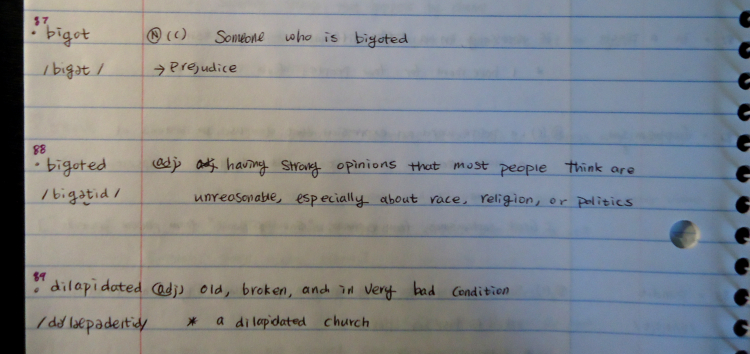 87
• bigot Ⓝ (C) Someone who is bigoted
/bigət/ → Prejudice
88
• bigoted (adj) having strong opinions that most people think are
/bigətid/ unreasonable, especially about race, religion, or politics
89
• dilapidated (adj) old, broken, and in very bad condition
* a dilapidated church